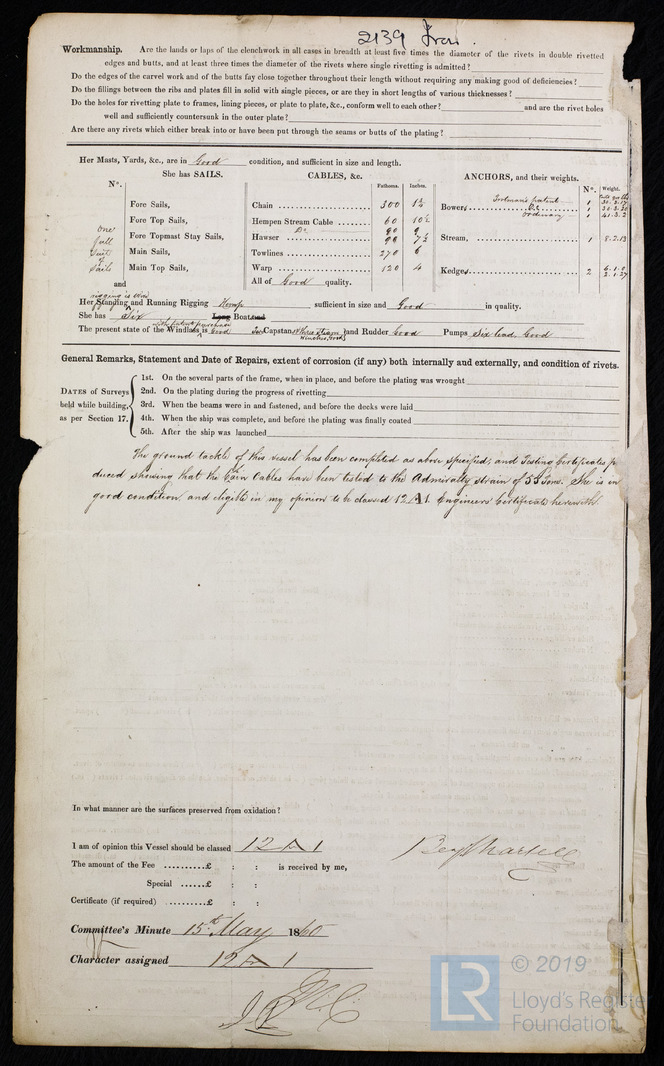 2139 Iron.
Workmanship. Are the lands or laps of the clenchwork in all cases in breadth at least five times the diameter of the rivets in double rivetted
edges and butts, and at least three times the diameter of the rivets where single rivetting is admitted?
Do the edges of the carvel work and of the butts fay close together throughout their length without requiring any making good of deficiencies?
Do the fillings between the ribs and plates fill in solid with single pieces, or are they in short lengths of various thicknesses?
Do the holes for rivetting plate to frames, lining pieces, or plate to plate, &c., conform well to each other? and are the rivet holes
well and sufficiently countersunk in the outer plate?
Are there any rivets which either break into or have been put through the seams or butts of the plating?
Her Masts, Yards, &c., are in Good condition, and sufficient in size and length.
She has SAILS. CABLES, &c. ANCHORS, and their weights.
N°. Fathoms. Inches. N°. Weight.
Fore Sails, Chain 300 1⅞ Bowers Trotman's patent 1
Fore Top Sails, Hempen Stream Cable 60 10½ Do 1
one full suit of sails Fore Topmast Stay Sails, Do 90 9 ordinary 1 41.3.2
Hawser 90 7½
Main Sails, Towlines 270 6 Stream, 1 8.2.13
Main Top Sails, Warp 120 4 Kedges 2
and All of Good quality.
rigging is wire
Her Standing and Running Rigging Hemp sufficient in size and Good in quality.
She has Six Long Boat and
The present state of the Windlass is with patent purchase Good Capstan, & three steam winches, Good and Rudder Good Pumps Six lead, Good
General Remarks, Statement and Date of Repairs, extent of corrosion (if any) both internally and externally, and condition of rivets.
DATES of Surveys held while building, as per Section 17.
1st. On the several parts of the frame, when in place, and before the plating was wrought
2nd. On the plating during the progress of rivetting
3rd. When the beams were in and fastened, and before the decks were laid
4th. When the ship was complete, and before the plating was finally coated
5th. After the ship was launched
The ground tackle of this vessel has been completed as above specified, and Testing Certificates p
duced shewing that the Chain Cables have been tested to the Admiralty strain of 55 Tons. She is in
good condition and eligible in my opinion to be classed 12 A 1. Engineers Certificate herewith.
In what manner are the surfaces preserved from oxidation?
I am of opinion this Vessel should be classed 12 A 1
The amount of the Fee ..........£ : : is received by me,
Special ......£ : :
Certificate (if required) ..........£ : :
Committee's Minute 15th May 1860
Character assigned 12 A 1
© 2019
LR Lloyd's Register
Foundation